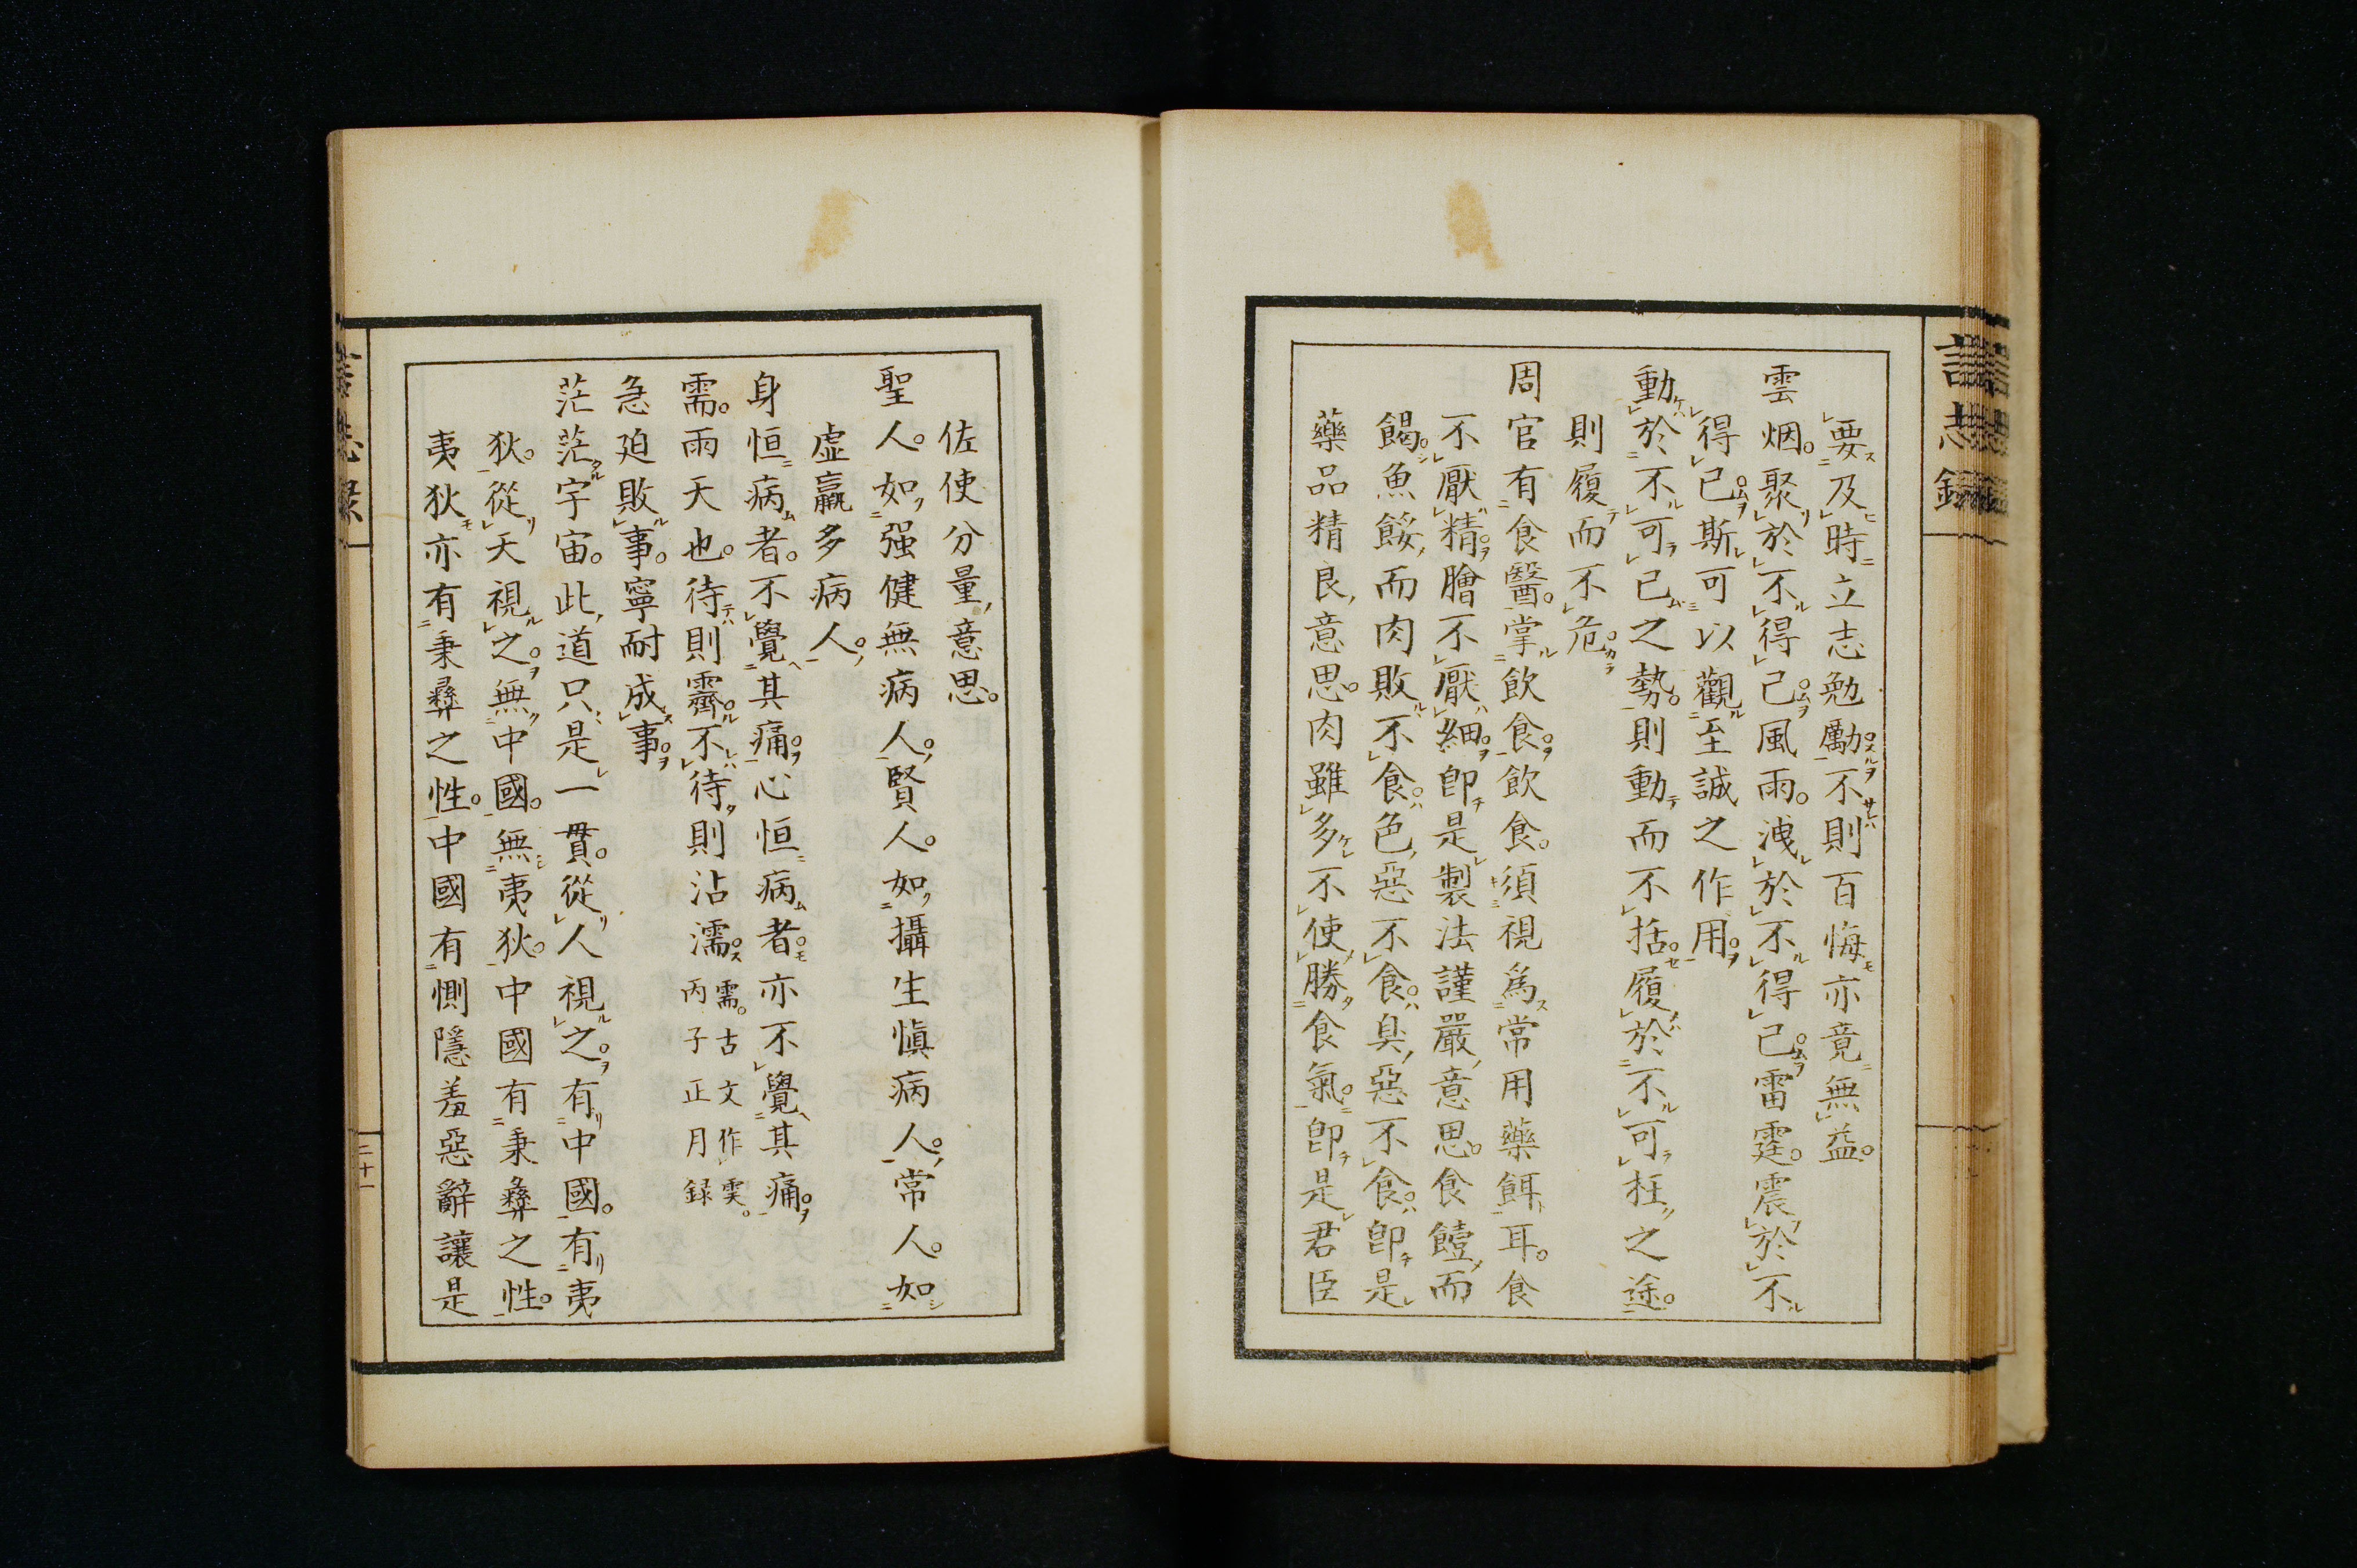 要及時立志勉勵不則百悔亦竟無益
雲烟聚於不得已風雨洩於不得已雷霆震於不
得已斯可以觀至誠之作用
動於不可已之勢則動而不括履於不可枉之途
則履而不危
周官有食醫掌飲食飲食須視爲常用藥餌耳食
不厭精膾不厭細卽是製法謹嚴意思食饐而
餲魚餒而肉敗不食色惡不食臭惡不食卽是
藥品精良意思肉雖多不使勝食氣卽是君臣
佐使分量意思
聖人如强健無病人賢人如攝生愼病人常人如
虛羸多病人
身恒病者不覺其痛心恒病者亦不覺其痛
需雨天也待則霽不待則沾濡需古文作䨕丙子正月録
急迫敗事寧耐成事
茫茫宇宙此道只是一貫從人視之有中國有夷
狄從天視之無中國無夷狄中國有秉彝之性
夷狄亦有秉彝之性中國有惻隱羞惡辭讓是
二十一